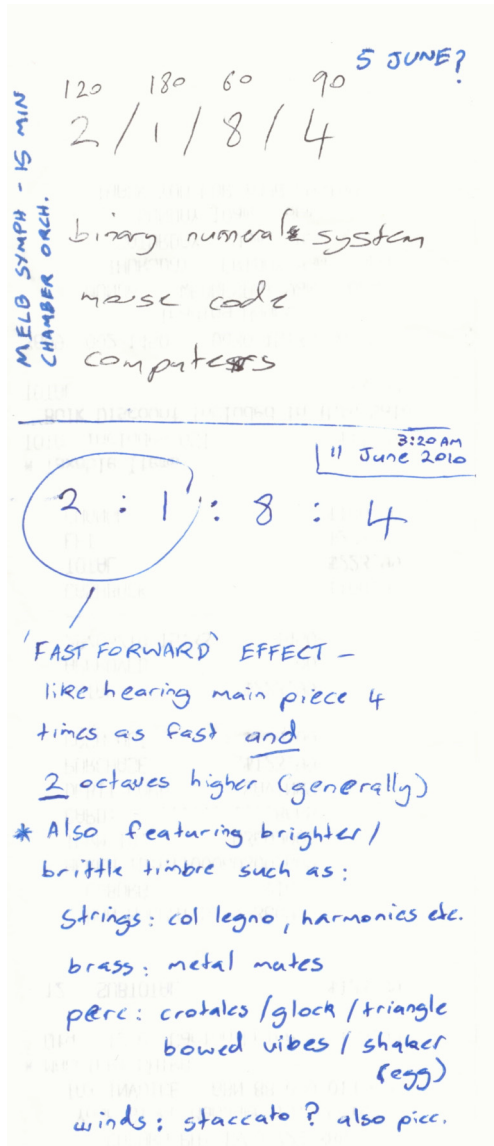 5 JUNE?
120 180 60 90
2 / 1 / 8 / 4
MELB SYMPH - 15 MIN
CHAMBER ORCH.
binary numeral system
morse code
computers
3:20 AM
11 June 2010
2 : 1 : 8 : 4
'FAST FORWARD' EFFECT -
like hearing main piece 4
times as fast and
2 octaves higher (generally)
* Also featuring brighter /
brittle timbre such as:
Strings: col legno, harmonics etc.
brass: metal mutes
perc: crotales / glock / triangle
bowed vibes / shaker
(egg)
winds: staccato ? also picc.